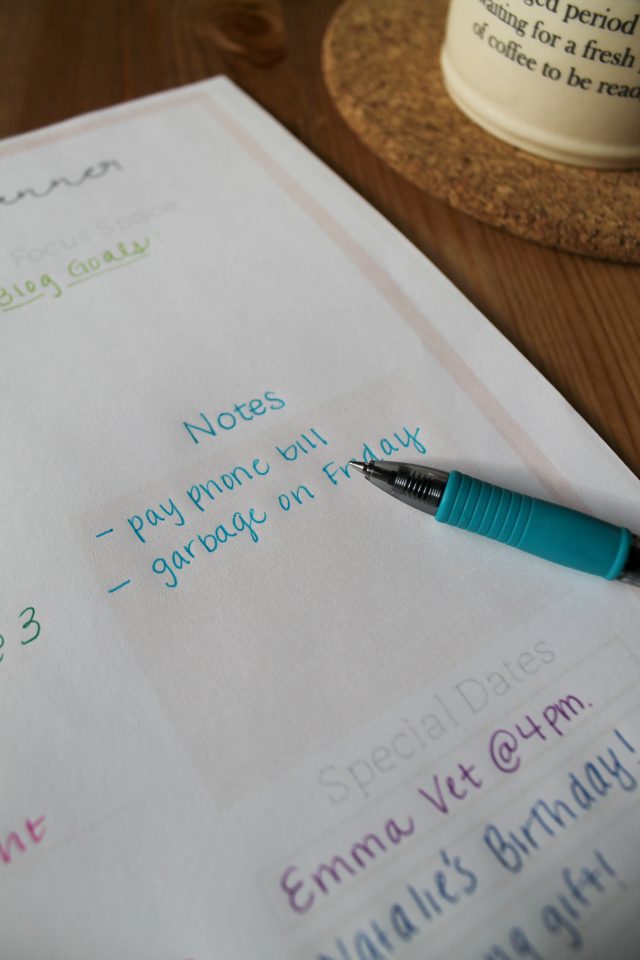 ged period
waiting for a fresh
of coffee to be read
Focus Space
Blog Goals:
Notes
- pay phone bill
- garbage on Friday
3
Special Dates
Emma Vet @4pm.
Natalie's Birthday!
gift!